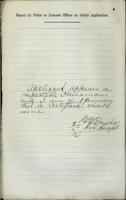 Report by Police or Customs Officer on within Application.
Applicant appears a
respectable Chinaman
and I am of opinion
that a Certificate should
issue